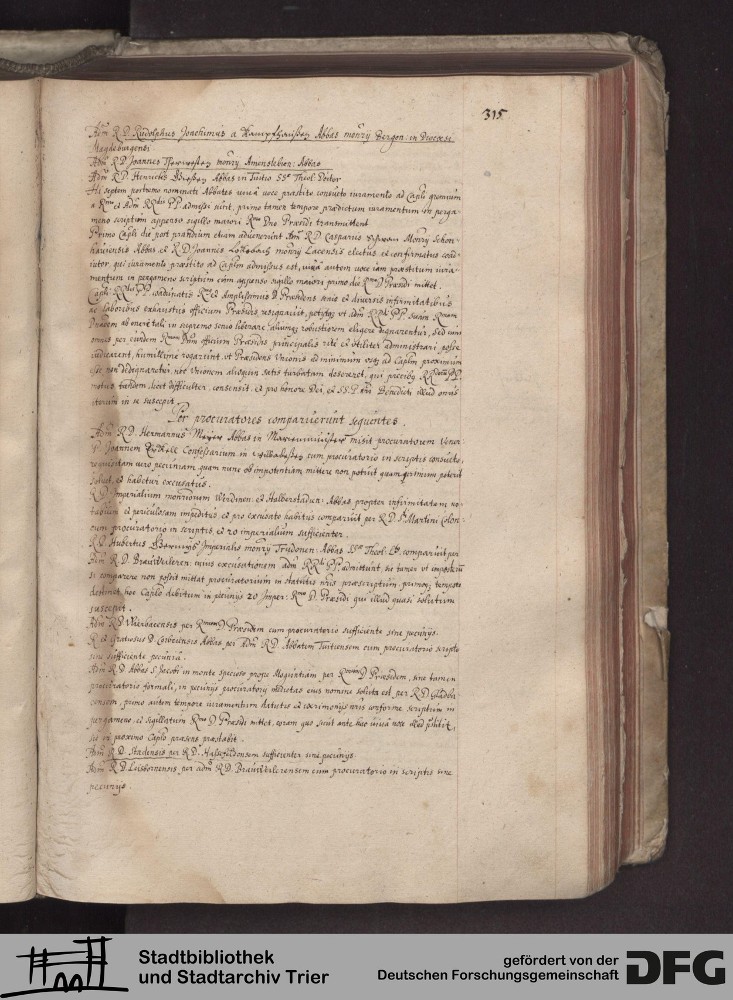 315
Adm R.D. Rudolphus Joachimus a Abbas monrij Bergen: in Diocoesi
Magdeburgensi
Adm R.D. Joannes monrij Amenslebien: Abbas
Adm R.D. Henricus Abbas in Tuitio SSæ Theol: Doctor
Hi septem postremo nominati Abbates unica voce præstito consueto iuramento ad Capli gremium
a Rmo et Adm RRdis PP admissi sunt, primo tamen tempore prædictum iuramentum in perga-
meno scriptum appenso sigillo maiori Rmo Dno Præsidi transmittent.
Primo Capli die post prandium etiam advenerunt Adm R.D. Casparus Monrij Schon-
haviensis Abbas et R.D. Joannes monrij Lacensis electus et confirmatus coad-
iutor, qui iuramento præstito ad Caplum admissus est, viva autem voce iam præstitum iura-
mentum in pergameno scriptum cum appenso sigillo maiori primo die Rmo D. Præsidi mittet.
Capli RRdis PP. coadunatis Rmus et Amplissimus D. Præsidens senio et diversis infirmitatibus
ac laboribus exhaustus officium Præsidis resignavit, petijtque ut Adm RRdi PP. suam Rmam
Dnem ab onere tali in supremo senio liberare aliumque robustiorem eligere dignarentur, sed cum
omnes per eundem Rmum Dnum officium Præsidis principalis rite et utiliter administrari posse
iudicarent, humillime rogarunt, ut Præsidens Unionis ad minimum usque ad Caplum proximum
esse non dedignaretur, nec Unionem aliquem satis turbatam desereret, qui precibus RRdorum PP.
motus tandem, licet difficulter, consensit, et pro honore Dei, et SS. P. nri Benedicti illud onus
iterum in se suscepit.
Per procuratores comparuerunt sequentes.
Adm R.D. Hermannus Abbas in misit procuratorem Vener:
P. Joannem Confessarium in cum procuratorio in scriptis consueto,
requisitam vero pecuniam quam nunc ob impotentiam mittere non potuit quam primum poterit
solvet, et habetur excusatus.
R.D. Imperialium monriorum Werdinen: et Halberstadien: Abbas, propter infirmitatem no-
tabilem et periculosam impeditus et pro excusato habitus comparuit per R.D. S. Martini Colon:
cum procuratorio in scriptis, et 20 imperialium sufficienter.
R.D. Hubertus Imperialis monrij Trudonen: Abbas SSæ Theol: comparuit per
Adm R.D. Brauwileren: cuius excusationem adm RRdi PP. admittunt, si tamen ut imposterum
si comparere non possit mittat procuratorium in statutis nris præscriptum, primoque tempore
destinet, hoc Caplo debitum in pecunijs 20 Imper: Rmo D. Præsidi qui illud quasi solutum
suscepit.
Adm R.D. Werbacensis per Rmum D. Præsidem cum procuratorio sufficiente sine pecunijs.
R. et Gratiosus D. Corbeiensis Abbas per Adm R.D. Abbatem Tuitiensem cum procuratorio scripto
sine sufficiente pecunia.
Adm R.D. Abbas S. Jacobi in monte specioso prope Moguntiam per Rmum D. Præsidem, sine tamen
procuratorio formali, in pecunijs procuratorij eius nomine soluta est per R.D.
censem, primo autem tempore iuramentum statutis et cæremonijs nris conforme scriptum in
pergameno et sigillatum Rmo D. Præsidi mittet, coram quo sicut ante hoc viva voce illud
sic in proximo Caplo præsens præstabit.
Adm R.D. Stadensis per R.D. sufficienter sine pecunijs.
Adm R.D. Leisbornensis per adm R.D. Brauwilerensem cum procuratorio in scriptis sine
pecunijs.
Stadtbibliothek
und Stadtarchiv Trier
gefördert von der
Deutschen Forschungsgemeinschaft
DFG